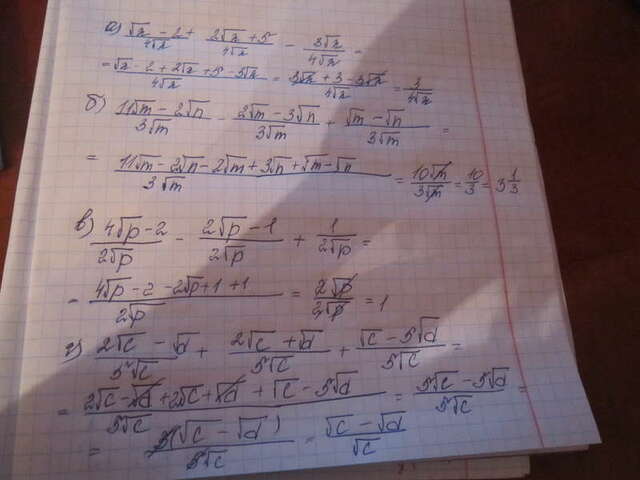 а) (√x − 2)/(4√x) + (2√x + 5)/(4√x) − (3√x)/(4√x) =
= (√x − 2 + 2√x + 5 − 3√x)/(4√x) = (3√x + 3 − 3√x)/(4√x) = 3/(4√x)
б) (11√m − 2√n)/(3√m) − (2√m − 3√n)/(3√m) + (√m − √n)/(3√m) =
= (11√m − 2√n − 2√m + 3√n + √m − √n)/(3√m) = (10√m)/(3√m) = 10/3 = 3 1/3
в) (4√p − 2)/(2√p) − (2√p − 1)/(2√p) + 1/(2√p) =
= (4√p − 2 − 2√p + 1 + 1)/(2√p) = (2√p)/(2√p) = 1
г) (2√c − √d)/(5√c) + (2√c + √d)/(5√c) + (√c − 5√d)/(5√c) =
= (2√c − √d + 2√c + √d + √c − 5√d)/(5√c) = (5√c − 5√d)/(5√c) =
= 5(√c − √d)/(5√c) = (√c − √d)/(√c)